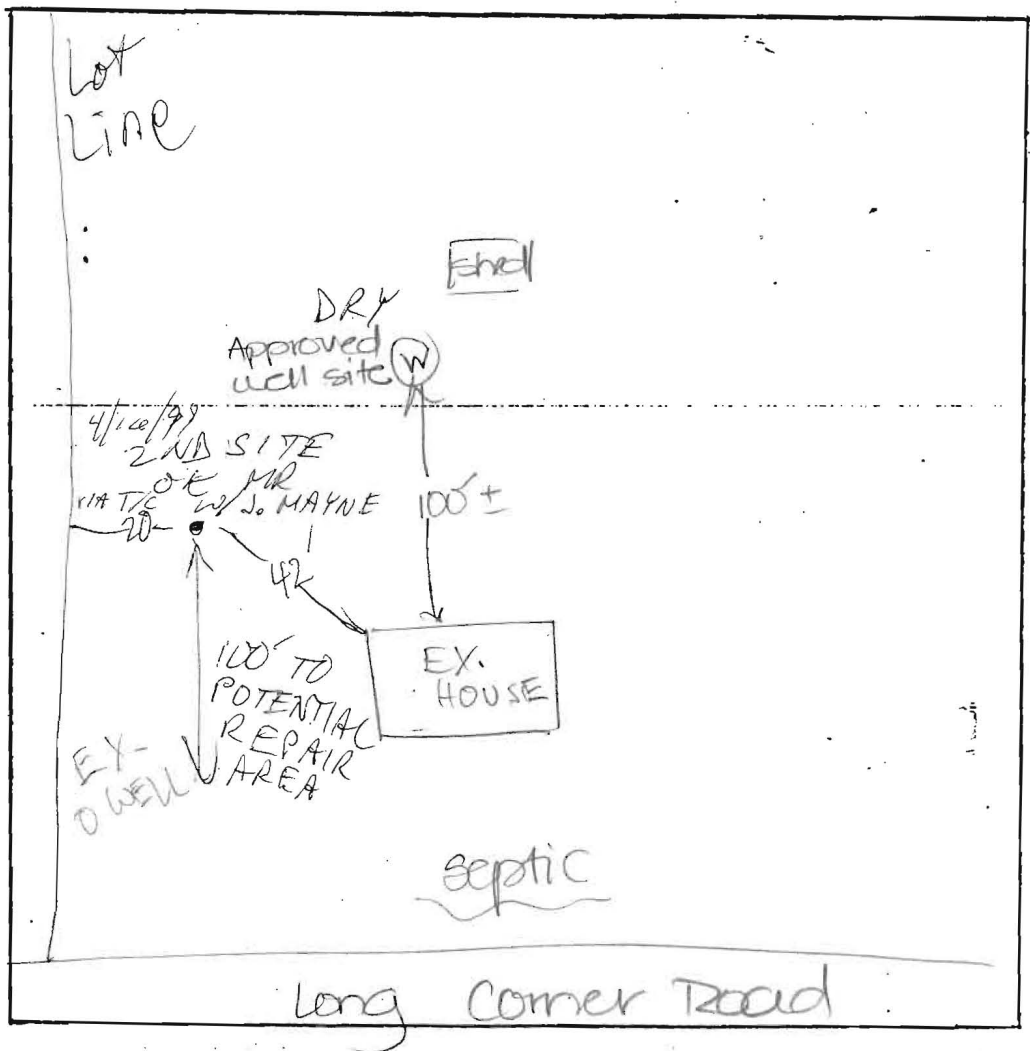 Lot
Line
shed
DRY
Approved
well site W
2ND SITE
OK MR
VIA T/C W/ J. MAYNE
20
100' ±
42
EX.
HOUSE
100' TO
POTENTIAL
REPAIR
AREA
EX-
O WELL
septic
Long Corner Road